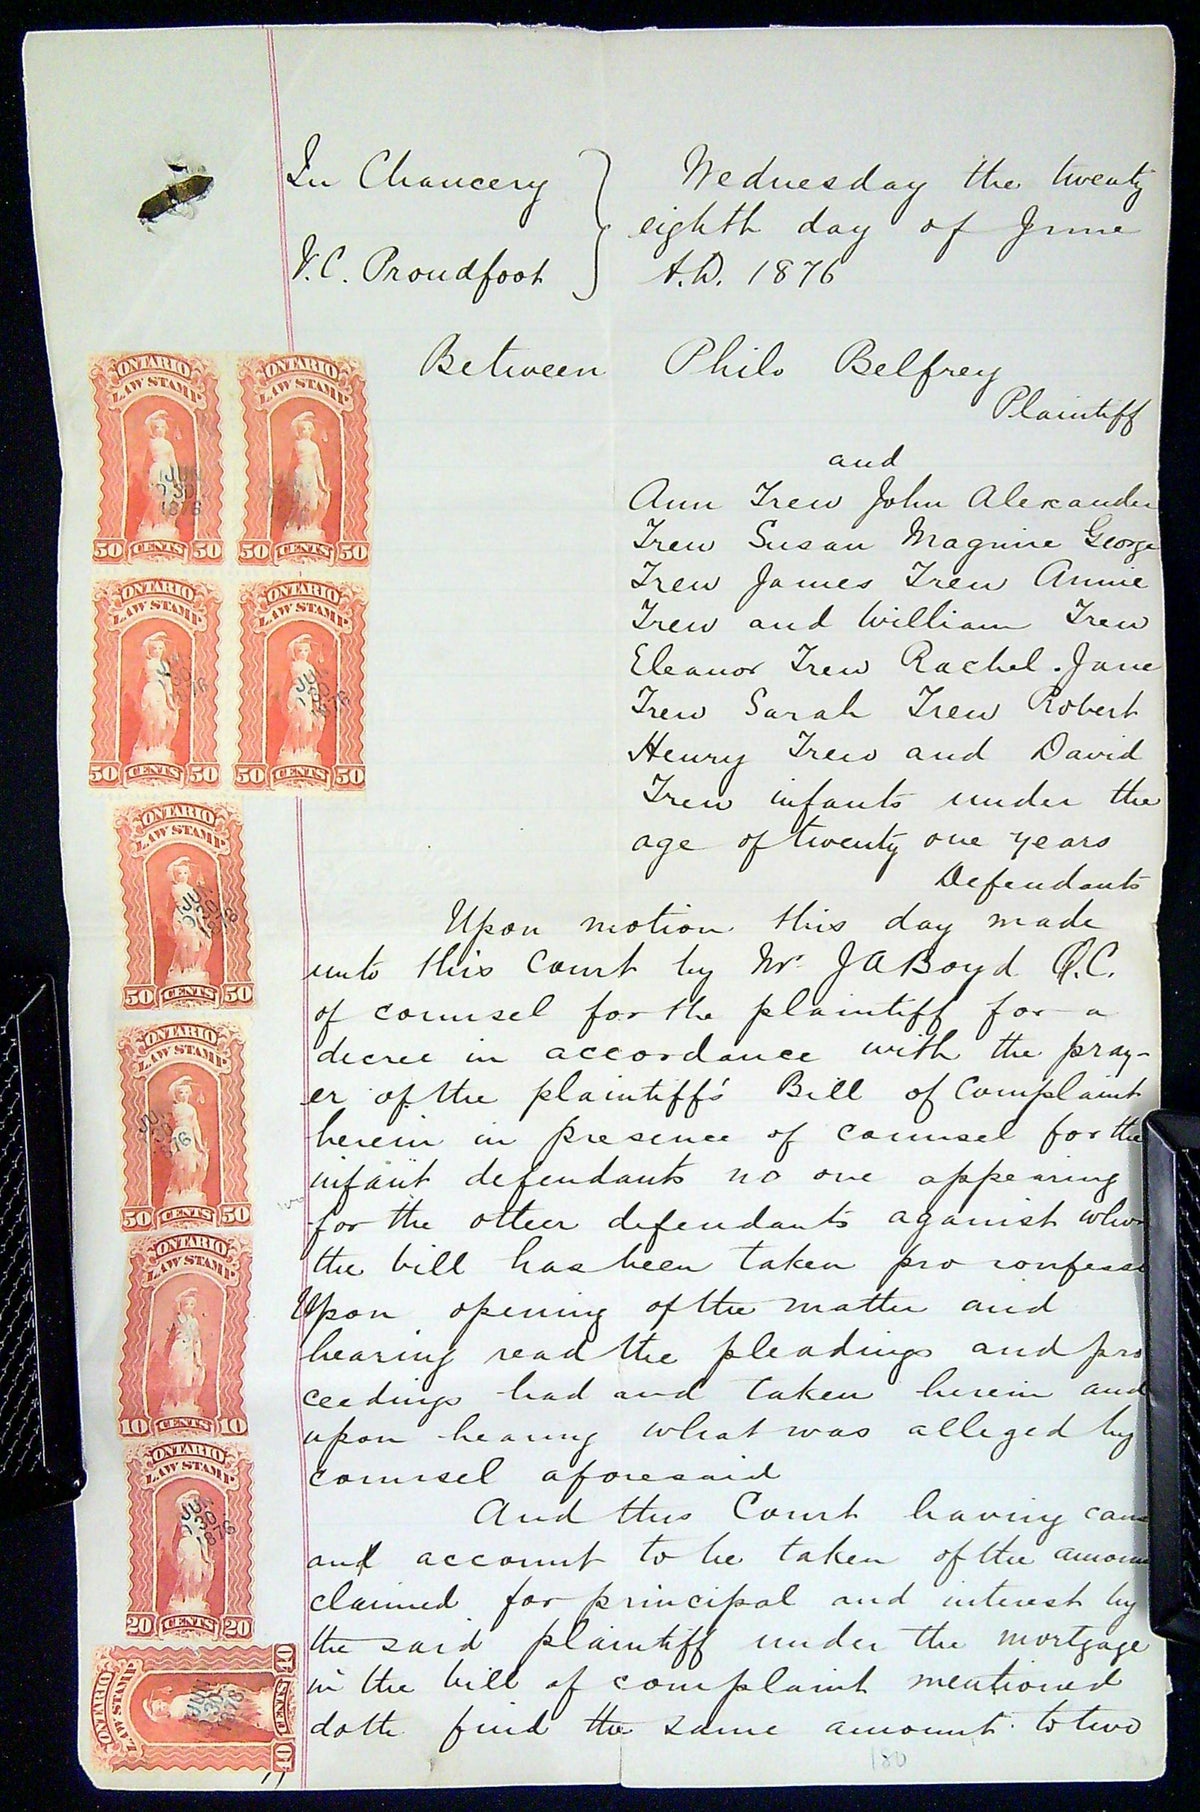 In Chancery
V.C. Proudfoot
Wednesday the twenty
eighth day of June
A.D. 1876
Between Philo Belfrey
Plaintiff
and
Ann Trew John Alexander
Trew Susan Maguire George
Trew James Trew Annie
Trew and William Trew
Eleanor Trew Rachel Jane
Trew Sarah Trew Robert
Henry Trew and David
Trew infants under the
age of twenty one years
Defendants
Upon motion this day made
unto this Court by Mr J A Boyd Q.C.
of counsel for the plaintiff for a
decree in accordance with the pray-
er of the plaintiff's Bill of Complaint
herein in presence of counsel for the
infant defendants no one appearing
for the other defendants against whom
the bill has been taken pro confesso
Upon opening of the matter and
hearing read the pleadings and pro
ceedings had and taken herein and
upon hearing what was alleged by
counsel aforesaid
And this Court having
and account to be taken of the
claimed for principal and interest by
the said plaintiff under the mortgage
in the bill of complaint mentioned
doth find the same amount to two
180
ONTARIO
LAW STAMP
JUN
30
1876
50 CENTS 50
ONTARIO
LAW STAMP
50 CENTS 50
ONTARIO
LAW STAMP
1876
50 CENTS 50
ONTARIO
LAW STAMP
JUN
30
1876
50 CENTS 50
ONTARIO
LAW STAMP
JUN
30
1876
50 CENTS 50
ONTARIO
LAW STAMP
JUN
1876
50 CENTS 50
ONTARIO
LAW STAMP
10 CENTS 10
ONTARIO
LAW STAMP
JUN
30
1876
20 CENTS 20
ONTARIO
LAW STAMP
JUN
30
1876
10 CENTS 10